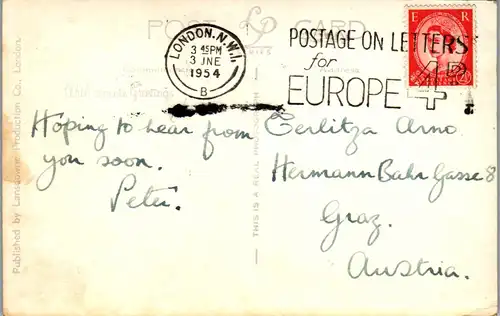 POST CARD
LP
SERIES
LONDON.N.W.1
3 45PM
3 JNE
1954
B
POSTAGE ON LETTERS
for
EUROPE 4D
E R
Address
With
Hoping to hear from
you soon.
Peter.
Published by Lansdowne Production Co., London.
THIS IS A REAL PHOTOGRAPH
Gerlitza Arno
Hermann Bahr Gasse 8
Graz.
Austria.